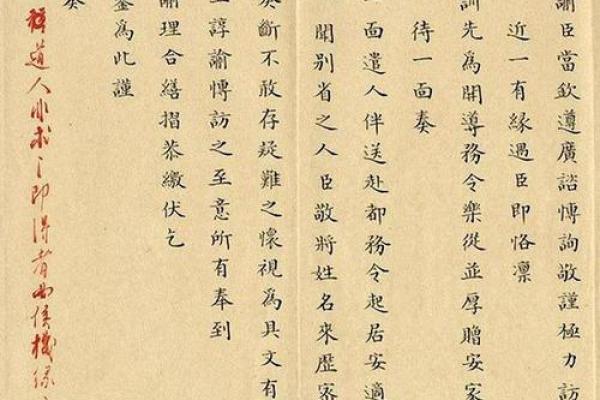 諭臣當欽遵廣諮博詢敬謹極力訪
近一有緣遇臣即恪凛
訓先為開導務令樂從並厚贈安家
待一面奏
一面遣人伴送赴都務令起居安適
聞別省之人臣敬將姓名来歷密
奏斷不敢存疑難之懷視為具文有
諄諭博訪之至意所有奉到
諭理合繕摺恭繳伏乞
鍳為此謹
奏
道人非求之即得者